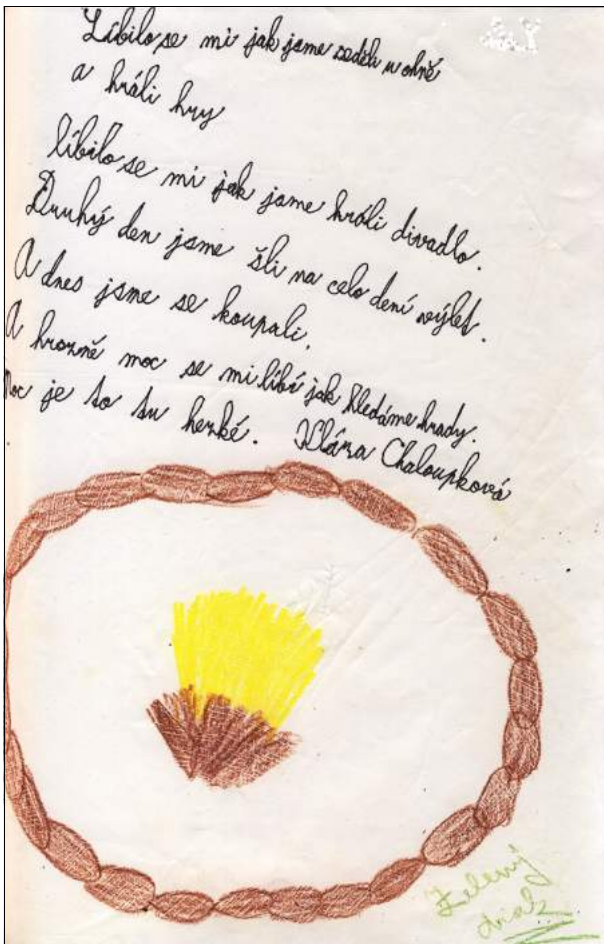 Líbilo se mi jak jsme seděli u ohně
a hráli hry
líbilo se mi jak jsme hráli divadlo.
Druhý den jsme šli na celo dení výlet.
A dnes jsme se koupali.
A hrozně moc se mi líbí jak hledáme hrady.
Moc je to tu hezké. Klára Chaloupková
Zelený
drak